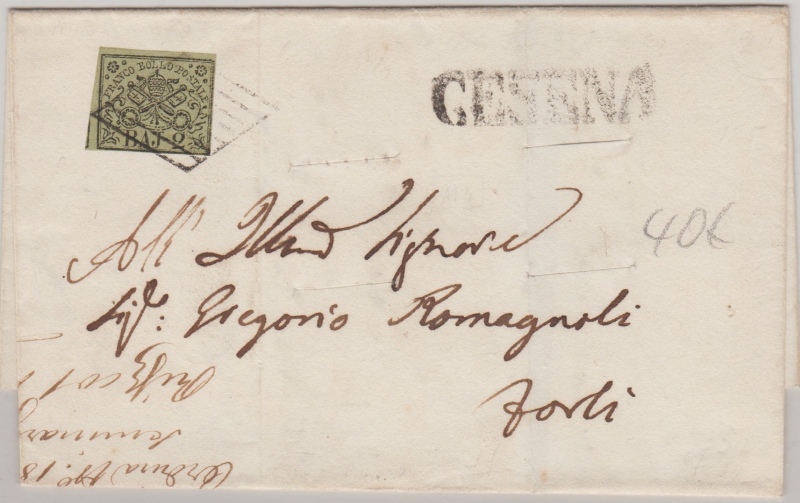 FRANCO BOLLO POSTALE
BAJ 2
CESENA
All' Illmo Signore
Sig.: Gregorio Romagnoli
Forlì
40€